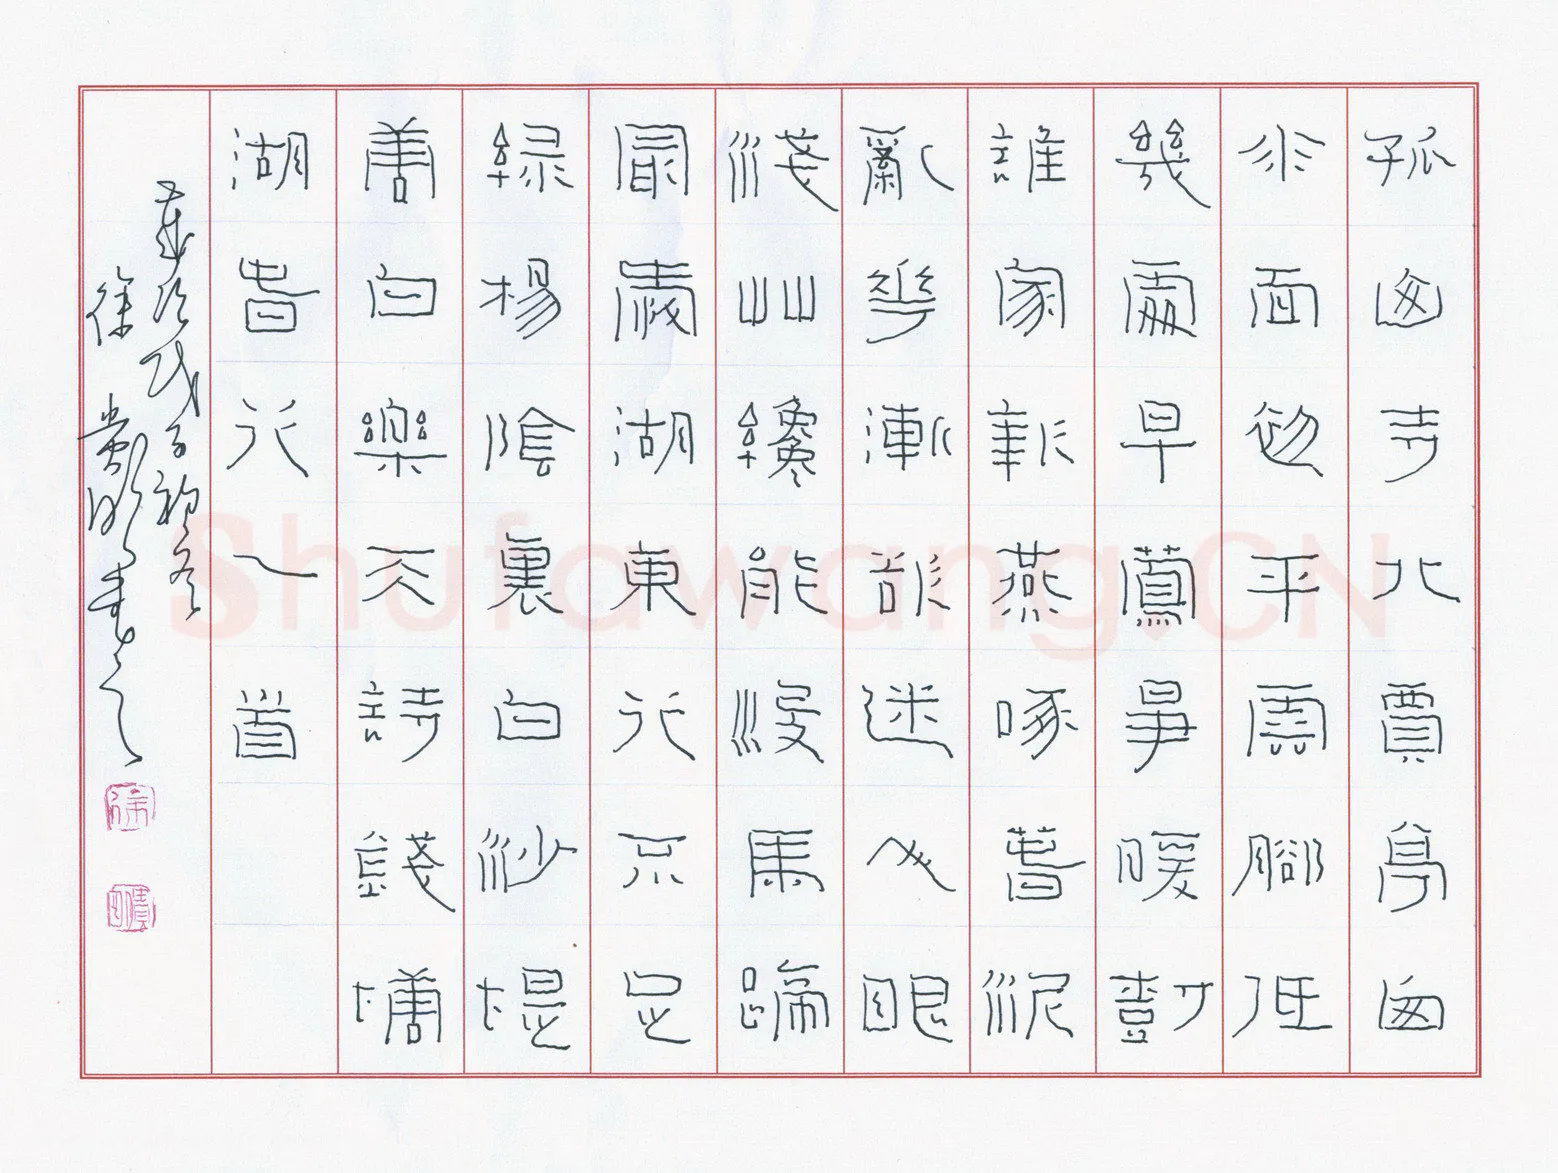 孤山寺北賈亭西
水面初平雲腳低
幾處早鶯爭暖樹
誰家新燕啄春泥
亂花漸欲迷人眼
淺艸纔能沒馬蹄
最愛湖東行不足
綠楊陰裏白沙堤
唐白樂天詩錢塘
湖春行一首
歲次戊子初冬
徐
徐
Shufawang.CN